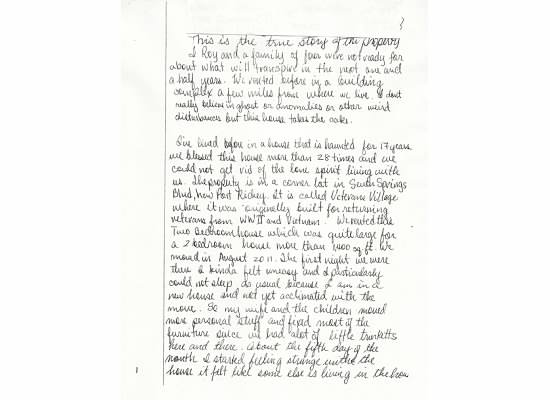 3
This is the true story of the property
I Roy and a family of four were not ready for
about what will transpire in the next one and
a half years. We rented before in a building
complex a few miles from where we live. I dont
really believe in ghost or anomalies or other weird
disturbances but this house takes the cake.
I've lived before in a house that is haunted for 17 years
we blessed this house more than 28 times and we
could not get rid of the lone spirit living with
us. The property is in a corner lot in Seven Springs
Blvd, New Port Richey. It is called Veterans Village
where it was originally built for returning
veterans from WWII and Vietnam. We rented this
Two Bedroom house which was quite large for
a 2 bedroom house more than 1400 sq. ft. We
moved in August 2011. The first night we were
there I kinda felt uneasy and I particularly
could not sleep as usual because I am in a
new house and not yet acclimated with the
move. So my wife and the children moved
more personal stuff and fixed most of the
furniture since we had alot of little trinketts
here and there. About the fifth day of the
month I started feeling strange the
house it felt like some else is living in the